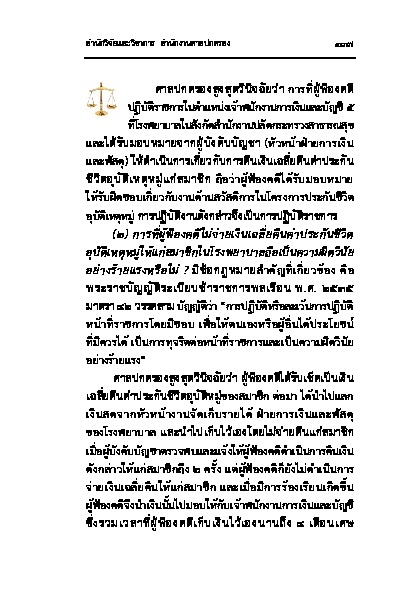 สำนักวิจัยและวิชาการ สำนักงานศาลปกครอง ๕๘๗
ศาลปกครองสูงสุดวินิจฉัยว่า การที่ผู้ฟ้องคดี
ปฏิบัติราชการในตำแหน่งเจ้าพนักงานการเงินและบัญชี ๕
ที่โรงพยาบาลในสังกัดสำนักงานปลัดกระทรวงสาธารณสุข
และได้รับมอบหมายจากผู้บังคับบัญชา (หัวหน้าฝ่ายการเงิน
และพัสดุ) ให้ดำเนินการเกี่ยวกับการคืนเงินเฉลี่ยคืนค่าประกัน
ชีวิตอุบัติเหตุหมู่แก่สมาชิก ถือว่าผู้ฟ้องคดีได้รับมอบหมาย
ให้รับผิดชอบเกี่ยวกับงานด้านสวัสดิการในโครงการประกันชีวิต
อุบัติเหตุหมู่ การปฏิบัติงานดังกล่าวจึงเป็นการปฏิบัติราชการ
(๒) การที่ผู้ฟ้องคดีไม่จ่ายเงินเฉลี่ยคืนค่าประกันชีวิต
อุบัติเหตุหมู่ให้แก่สมาชิกในโรงพยาบาลถือเป็นความผิดวินัย
อย่างร้ายแรงหรือไม่ ? มีข้อกฎหมายสำคัญที่เกี่ยวข้อง คือ
พระราชบัญญัติระเบียบข้าราชการพลเรือน พ.ศ. ๒๕๓๕
มาตรา ๘๒ วรรคสาม บัญญัติว่า "การปฏิบัติหรือละเว้นการปฏิบัติ
หน้าที่ราชการโดยมิชอบ เพื่อให้ตนเองหรือผู้อื่นได้ประโยชน์
ที่มิควรได้ เป็นการทุจริตต่อหน้าที่ราชการและเป็นความผิดวินัย
อย่างร้ายแรง"
ศาลปกครองสูงสุดวินิจฉัยว่า ผู้ฟ้องคดีได้รับเช็คเป็นเงิน
เฉลี่ยคืนค่าประกันชีวิตอุบัติหมู่ของสมาชิก ต่อมา ได้นำไปแลก
เงินสดจากหัวหน้างานจัดเก็บรายได้ ฝ่ายการเงินและพัสดุ
ของโรงพยาบาล และนำไปเก็บไว้เองโดยไม่จ่ายคืนแก่สมาชิก
เมื่อผู้บังคับบัญชาตรวจพบและแจ้งให้ผู้ฟ้องคดีดำเนินการคืนเงิน
ดังกล่าวให้แก่สมาชิกถึง ๒ ครั้ง แต่ผู้ฟ้องคดีก็ยังไม่ดำเนินการ
จ่ายเงินเฉลี่ยคืนให้แก่สมาชิก และเมื่อมีการร้องเรียนเกิดขึ้น
ผู้ฟ้องคดีจึงนำเงินนั้นไปมอบให้กับเจ้าพนักงานการเงินและบัญชี
ซึ่งรวมเวลาที่ผู้ฟ้องคดีเก็บเงินไว้เองนานถึง ๔ เดือนเศษ